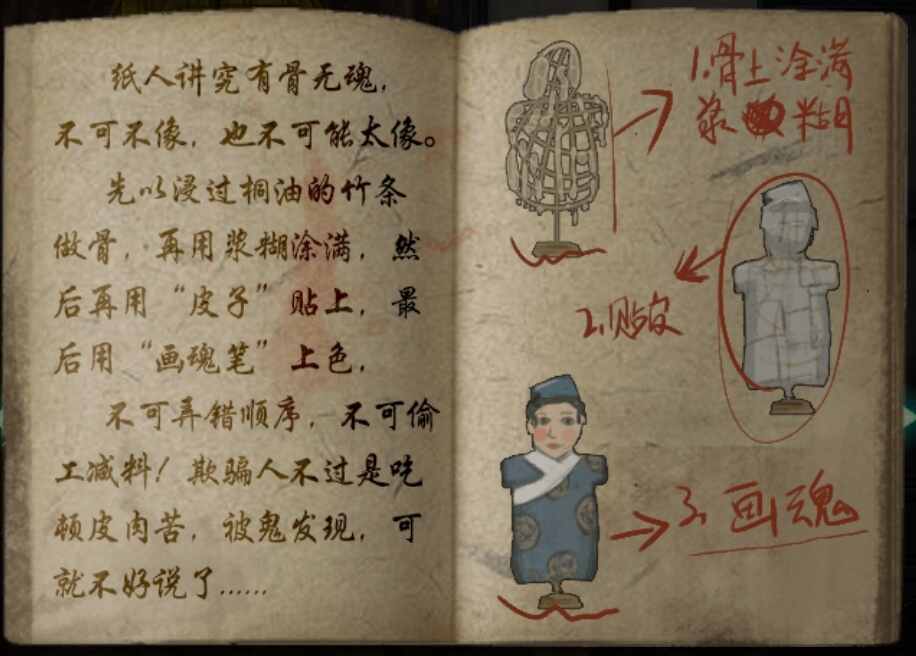 纸人讲究有骨无魂，
不可不像，也不可能太像。
先以浸过桐油的竹条
做骨，再用浆糊涂满，然
后再用“皮子”贴上，最
后用“画魂笔”上色，
不可弄错顺序，不可偷
工减料！欺骗人不过是吃
顿皮肉苦，被鬼发现，可
就不好说了……
1.骨上涂满
浆糊
2.贴皮
3.画魂